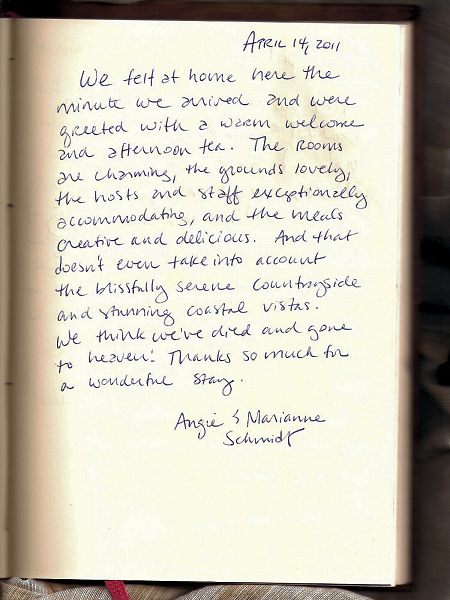 APRIL 14, 2011
We felt at home here the
minute we arrived and were
greeted with a warm welcome
and afternoon tea. The rooms
are charming, the grounds lovely,
the hosts and staff exceptionally
accommodating, and the meals
creative and delicious. And that
doesn't even take into account
the blissfully serene countryside
and stunning coastal vistas.
We think we've died and gone
to heaven! Thanks so much for
a wonderful stay.
Angie & Marianne
Schmidt